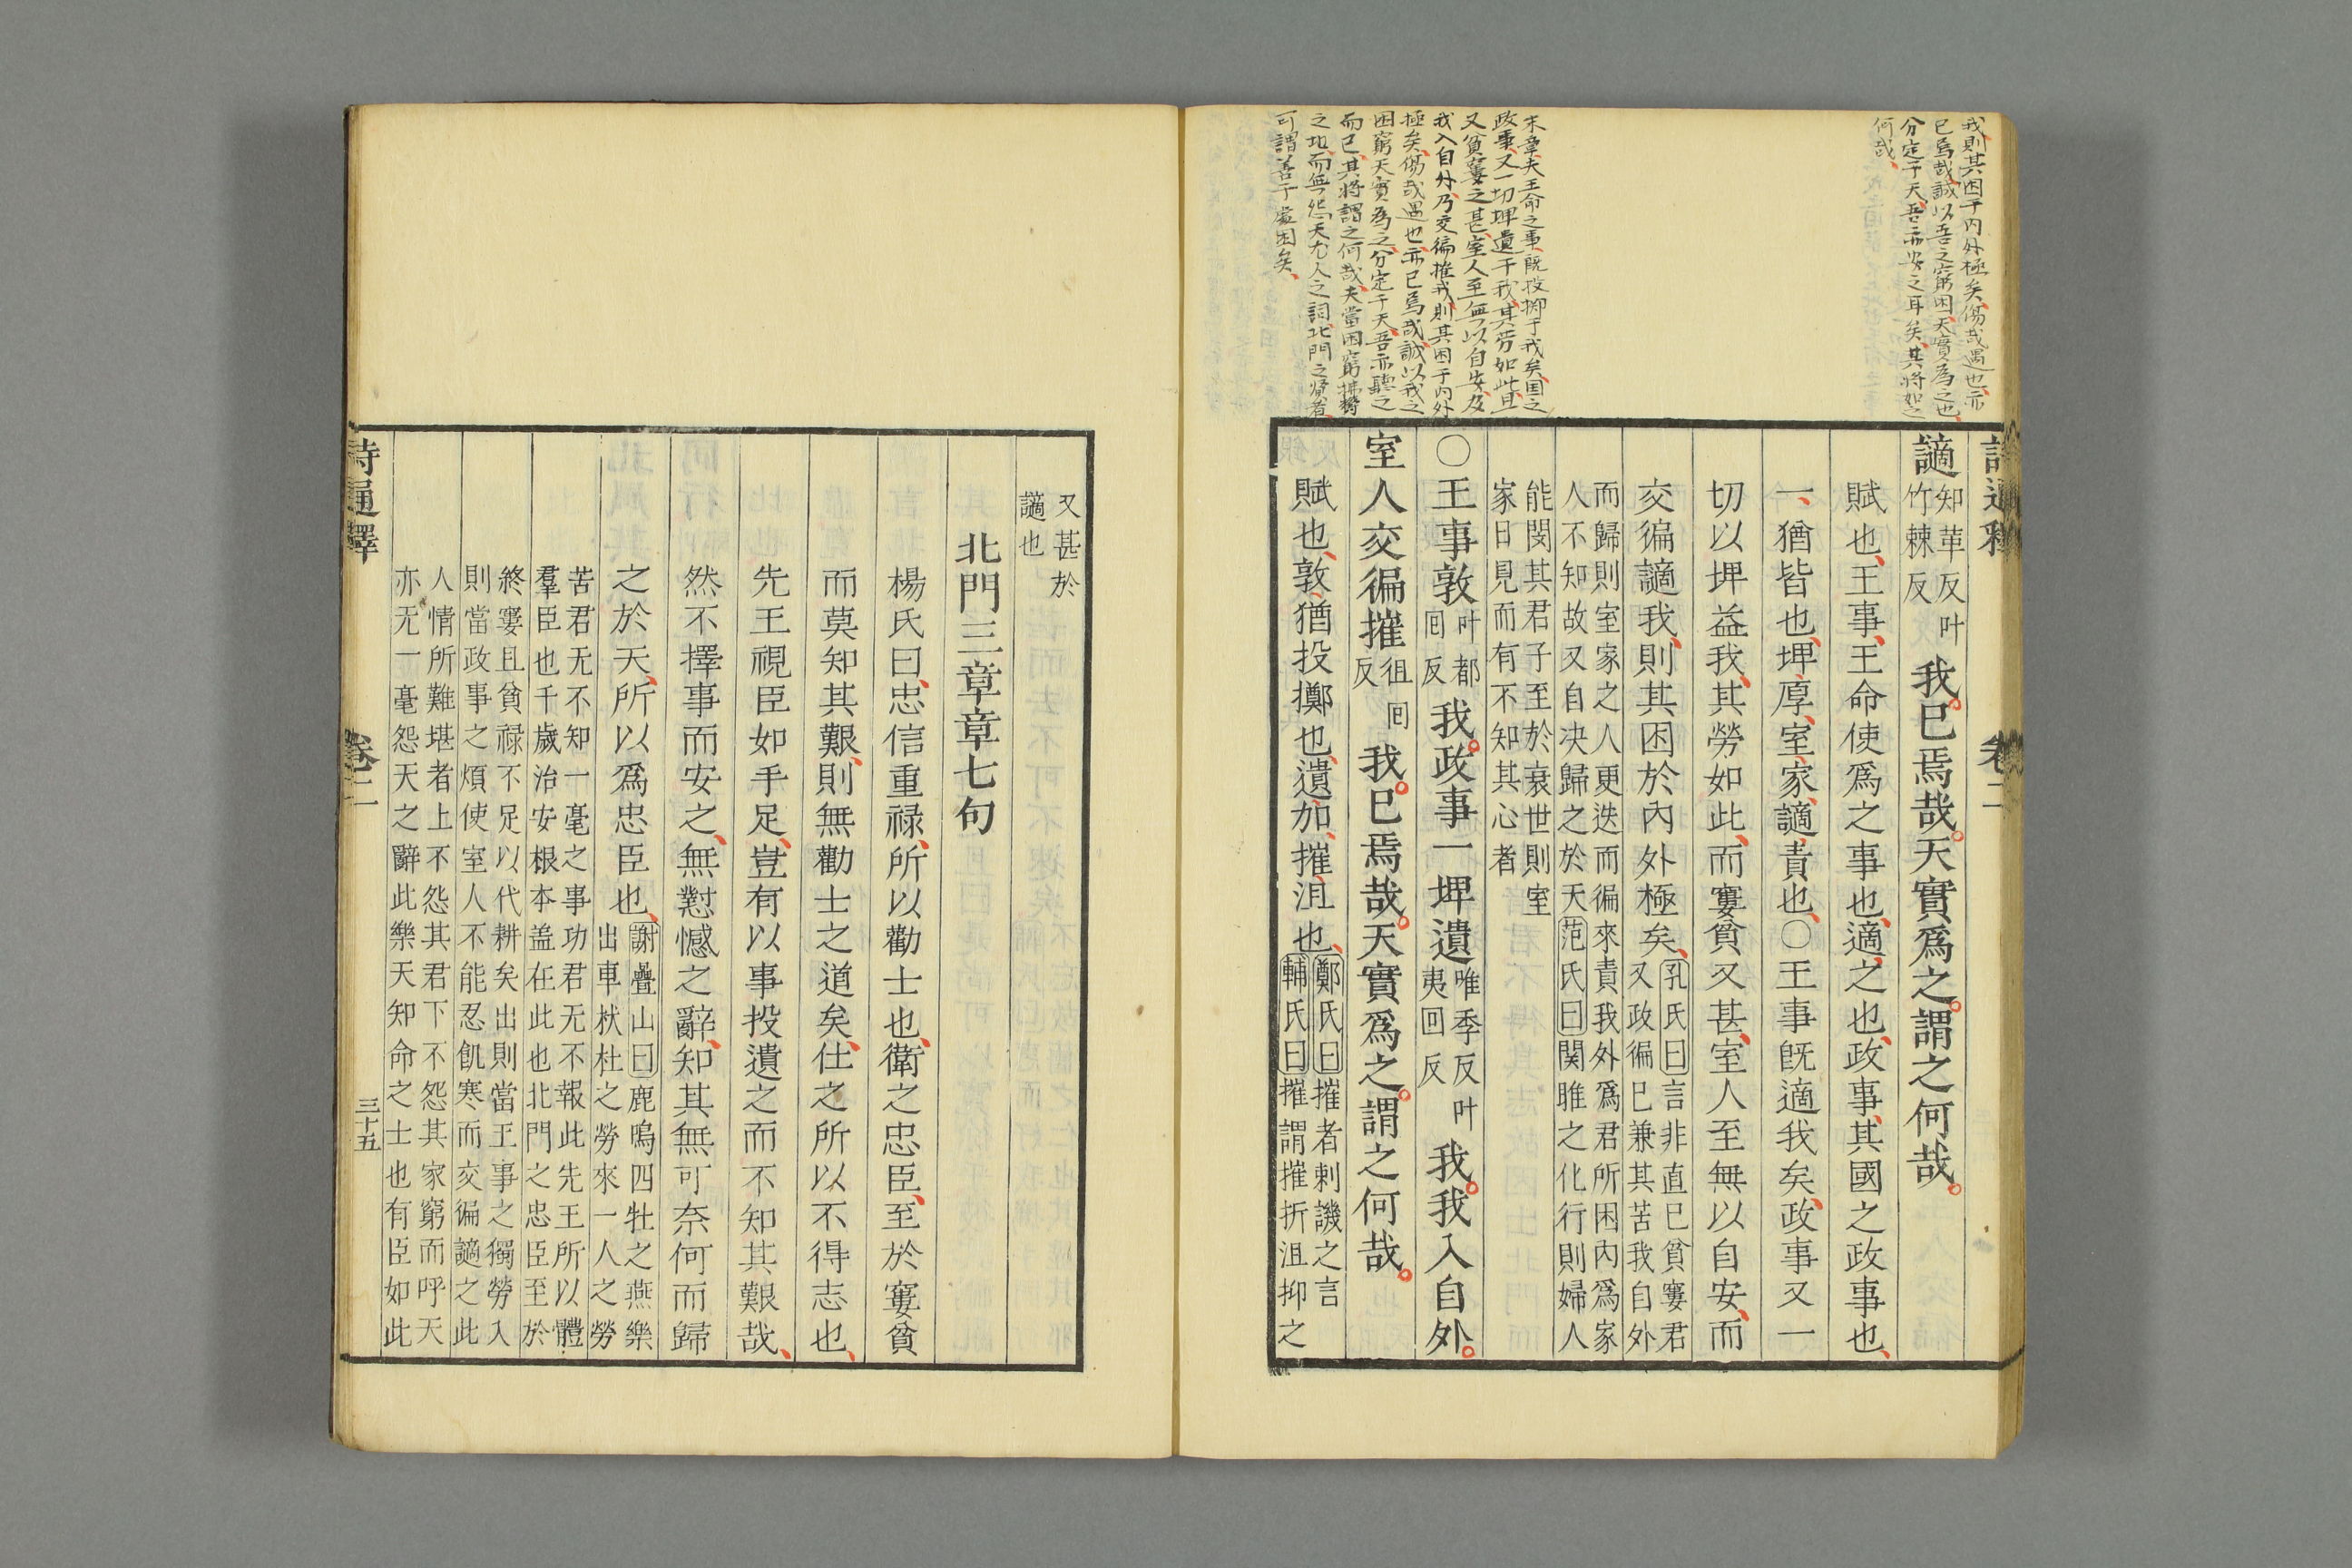 我則其困于內外極矣傷哉遇也亦
已焉哉誠以吾之窮困天實爲之也
分定于天吾亦安之耳矣其將如之
何哉
末章夫王命之事既投擲于我矣国之
政事又一切埤遺于我其劳如此且
又貧窶之甚室人至無以自安及
我入自外乃交徧摧我則其困于內外
極矣傷哉遇也亦已焉哉誠以我之
困窮天實為之分定于天吾亦聽之
而已其將謂之何哉夫當困窮拂欝
之地而無怨天尤人之詞北門之賢者
可謂善于處困矣
詩通釋 卷二
讁知革反叶竹棘反我已焉哉天實爲之謂之何哉
賦也王事王命使爲之事也適之也政事其國之政事也
一猶皆也埤厚室家讁責也○王事旣適我矣政事又一
切以埤益我其勞如此而窶貧又甚室人至無以自安而
交徧讁我則其困於內外極矣孔氏曰言非直巳貧窶君
又政徧巳兼其苦我自外
而歸則室家之人更迭而徧來責我外爲君所困內爲家
人不知故又自决歸之於天范氏曰関雎之化行則婦人
能閔其君子至於衰世則室
家日見而有不知其心者
○王事敦叶都囘反我政事一埤遺唯季反叶夷回反我我入自外
室人交徧摧徂囘反我已焉哉天實爲之謂之何哉
賦也敦猶投擲也遺加摧沮也鄭氏曰摧者刺譏之言
輔氏曰摧謂摧折沮抑之
又甚於
讁也
北門三章章七句
楊氏曰忠信重禄所以勸士也衛之忠臣至於窶貧
而莫知其艱則無勸士之道矣仕之所以不得志也
先王視臣如手足豈有以事投遺之而不知其艱哉
然不擇事而安之無懟憾之辭知其無可奈何而歸
之於天所以爲忠臣也謝疊山曰鹿鳴四牡之燕樂
出車杕杜之勞來一人之勞
苦君无不知一毫之事功君无不報此先王所以體
羣臣也千歲治安根本盖在此也北門之忠臣至於
終窶且貧禄不足以代耕矣出則當王事之獨勞入
則當政事之煩使室人不能忍飢寒而交徧讁之此
人情所難堪者上不怨其君下不怨其家窮而呼天
亦无一毫怨天之辭此樂天知命之士也有臣如此
詩通釋 卷二 三十五